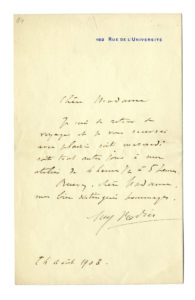 182 RUE DE L'UNIVERSITÉ
Chère Madame
Je suis de retour de
voyage et je vous recevrai
avec plaisir soit mercredi
soit tout autre jour à mon
atelier de 4 heures à 5 heures
chère Madame,
mes bien distingués hommages.
Aug Rodin
août 1908